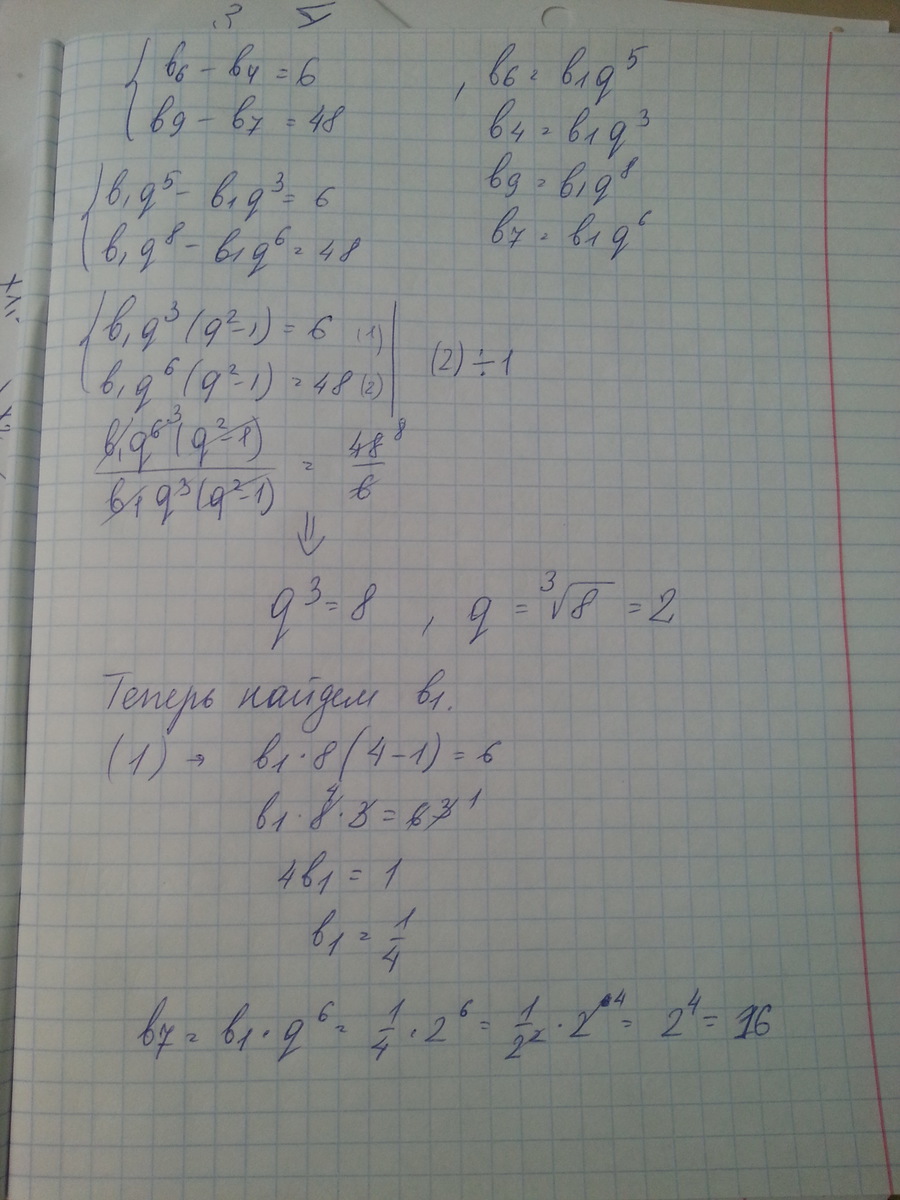 { b₆ - b₄ = 6 , b₆ = b₁q⁵
b₉ - b₇ = 48 b₄ = b₁q³
b₉ = b₁q⁸
{ b₁q⁵ - b₁q³ = 6 b₇ = b₁q⁶
b₁q⁸ - b₁q⁶ = 48
{ b₁q³(q²-1) = 6 (1) | (2) ÷ 1
b₁q⁶(q²-1) = 48 (2)
b₁q⁶ ³(q²-1) / b₁q³(q²-1) = 48 ⁸ / 6
⇓
q³ = 8 , q = ³√8 = 2
Теперь найдем b₁.
(1) → b₁·8(4-1) = 6
b₁·8 ⁴·3 = 6 3 ¹
4b₁ = 1
b₁ = 1/4
b₇ = b₁·q⁶ = 1/4 · 2⁶ = 1/2² · 2⁴ = 2⁴ = 16